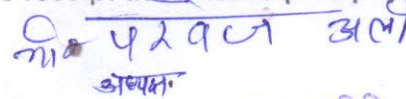 मो० परवज अली
अध्यक्ष